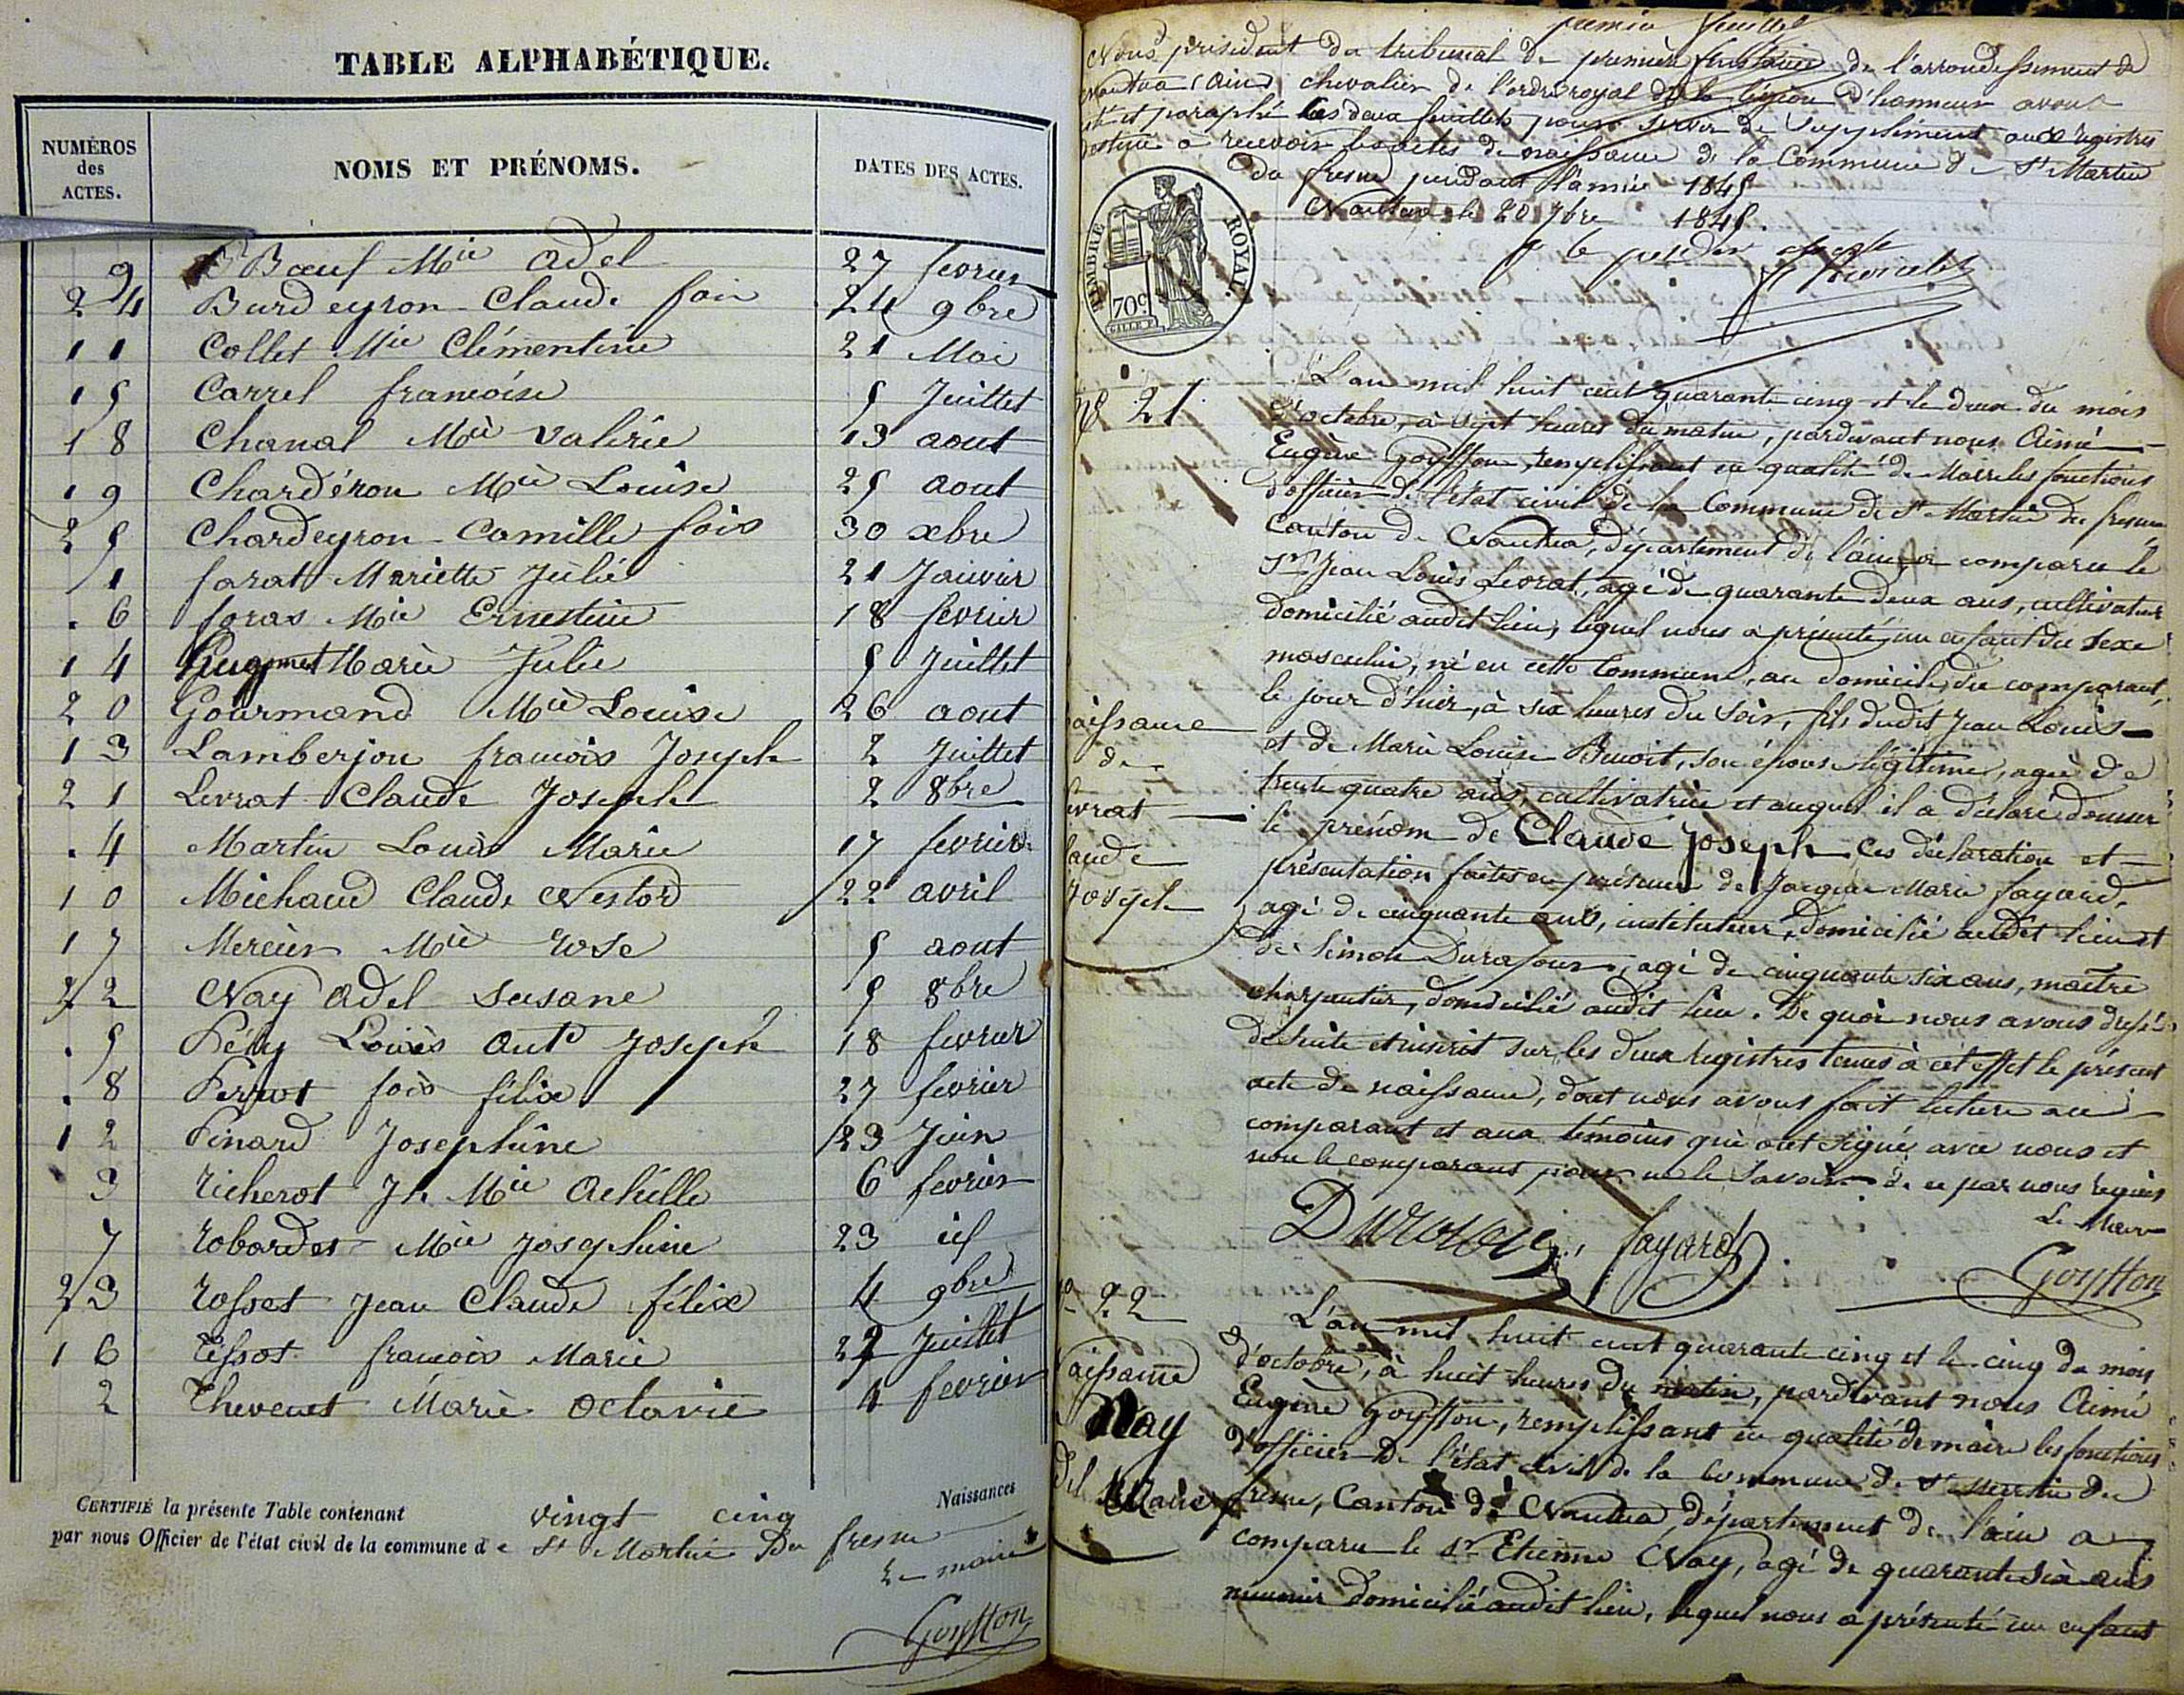 TABLE ALPHABÉTIQUE.
NUMÉROS des ACTES. NOMS ET PRÉNOMS. DATES DES ACTES.
9 Bœuf Mie Adel 27 fevrier
24 Burdeyron Claude fois 24 9bre
11 Collet Mie Clémentine 21 Mai
15 Carrel francoise 5 Juillet
18 Chanal Mie Valérie 13 aout
19 Chardéron Mie Louise 25 aout
25 Chardeyron Camille fois 30 xbre
1 farat Mariette Julie 21 Janvier
6 foras Mie Ernestine 18 fevrier
14 Marie Julie 5 Juillet
20 Gourmand Mie Louise 26 aout
13 Lamberjon francois Joseph 2 Juillet
21 Levrat Claude Joseph 2 8bre
4 Martin Louis Marie 17 fevrier
10 Michaud Claude Nestor 22 avril
17 Mercier Mie Rose 5 aout
22 Nay Adel Susane 5 8bre
5 Pély Louis Ant Joseph 18 fevrier
8 Pernot fois félix 27 fevrier
12 Pinard Josephine 23 Juin
3 Richerot Jh Mie Achille 6 fevrier
7 Robardet Mie Josephine 23 id
23 Rosset Jean Claude félix 4 9bre
16 Tissot francois Marie 22 Juillet
2 Thevenet Marie Octavie 4 fevrier
CERTIFIÉ la présente Table contenant vingt cinq Naissances
par nous Officier de l'état civil de la commune de St Martin Du fresne
Le maire
Goyffon
premier feuillet
Nous président du tribunal de première instance de l'arrondissement de
Nantua (ain) chevalier de l'ordre royal de la légion d'honneur avons
et paraphé les deux feuillets pour servir de supplément aux registres
destiné à recevoir les actes de naissance de la Commune de St Martin
du fresne pendant l'année 1845
Nantua le 20 7bre 1845.
TIMBRE ROYAL.
70c
N° 21
L'an mil huit cent quarante cinq et le deux du mois
d'octobre, à sept heures du matin, pardevant nous Aimé
Eugène Goyffon, remplissant en qualité de Maire les fonctions
d'officier de l'état civil de la Commune de St Martin du fresne
canton de Nantua, département de l'ain, a comparu le
Sr Jean Louis Levrat, agé de quarante deux ans, cultivateur
domicilié audit lieu, lequel nous a présenté un enfant du sexe
masculin, né en cette Commune, au domicile du comparant,
le jour d'hier, à six heures du soir, fils dudit Jean Louis
et de Marie Louise Benoit, son épouse légitime, agée de
trente quatre ans, cultivatrice et auquel il a déclaré donner
le prénom de Claude Joseph Ces déclaration et
présentation faites en présence de Jacque Marie fayard,
agé de cinquante ans, instituteur, domicilié audit lieu et
de Simon Durafour, agé de cinquante six ans, maître
charpentier, domicilié audit lieu. De quoi nous avons dressé
de suite et inscrit sur les deux registres tenus à cet effet le présent
acte de naissance, dont nous avons fait lecture au
comparant et aux témoins qui ont signé avec nous et
non le comparant pour ne le savoir de ce par nous requis
Le Maire
fayard
Goyffon
aissance
de
evrat
laude
Joseph
22
aissance
Nay
del Marie
L'an mil huit cent quarante cinq et le cinq du mois
d'octobre, à huit heures du matin, pardevant nous Aimé
Eugène Goyffon, remplissant en qualité de maire les fonctions
d'officier de l'état civil de la Commune de St Martin du
fresne, Canton de Nantua, département de l'ain a
comparu le Sr Etienne Nay, agé de quarante six ans
meunier domicilié audit lieu, lequel nous a présenté un enfant